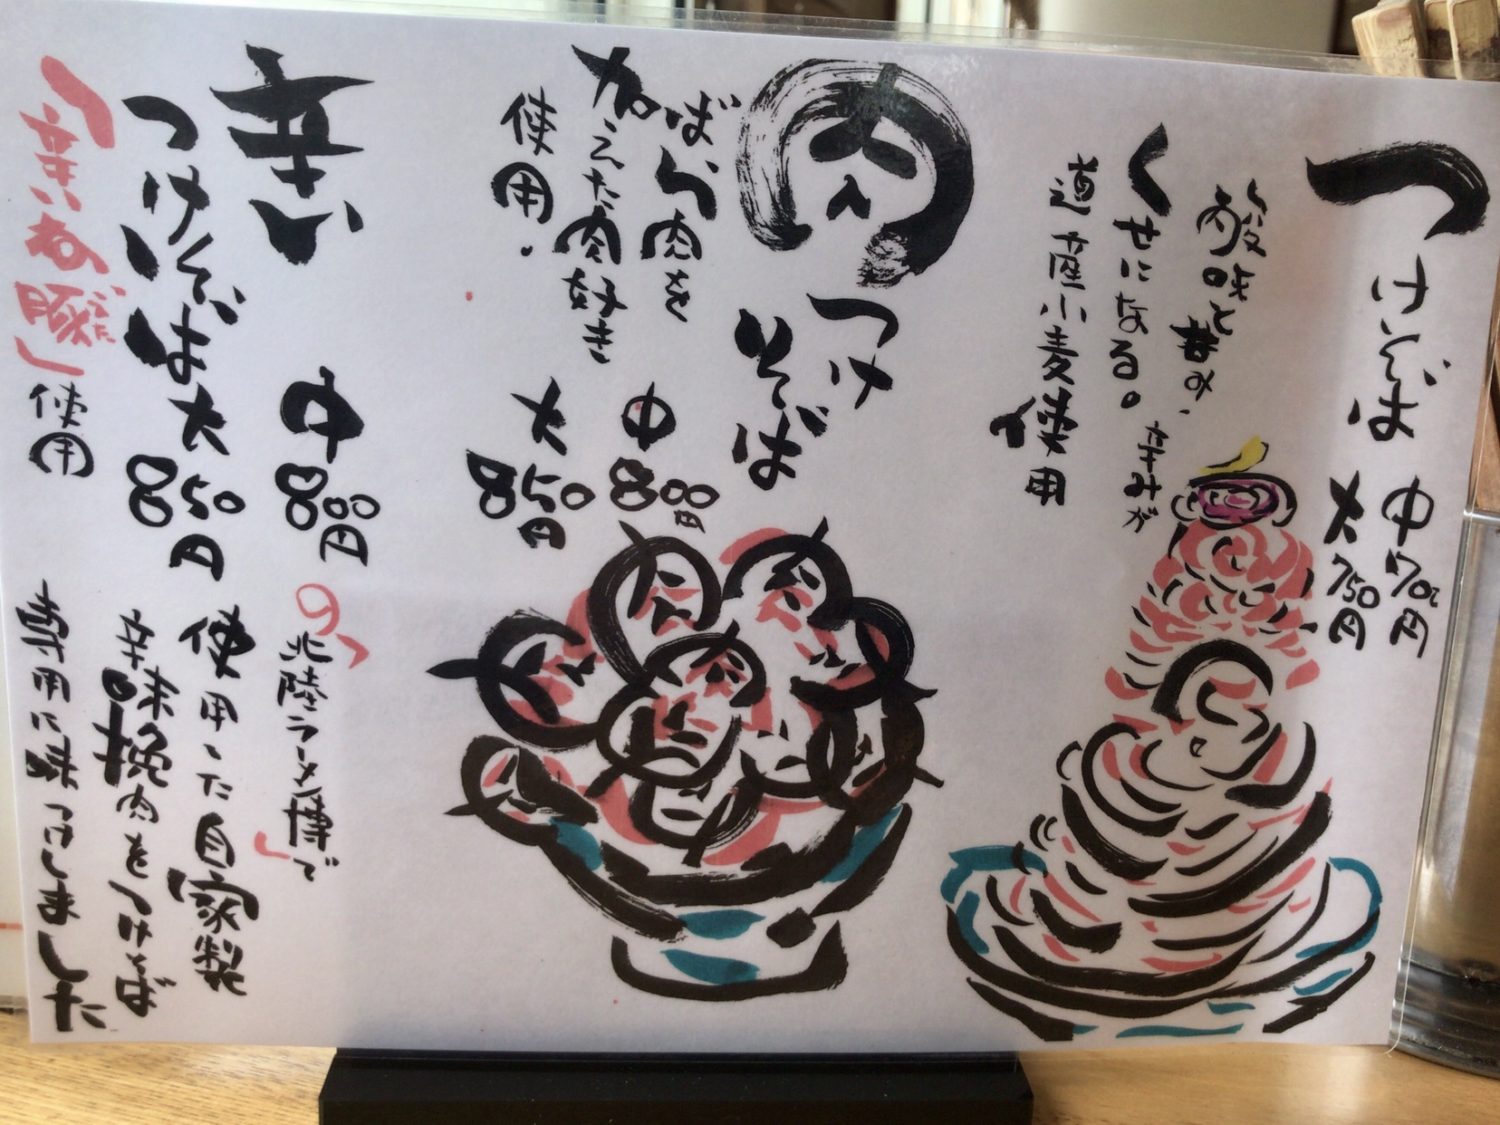 つけそば
中700円
大750円
酸味と甘み、辛みが
くせになる。
道産小麦使用
肉つけそば
ばら肉を
加えた肉好き
使用.
中800円
大850円
辛い
つけそば大850円
中800円
「辛いね豚」使用
の「北陸ラーメン博」で
使用した自家製
辛味挽肉をつけそば
専用に味つけしました